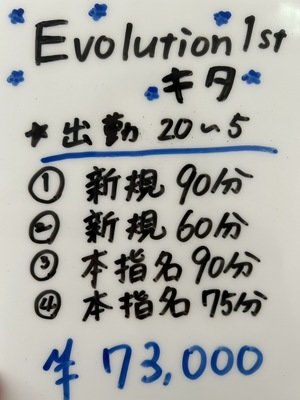 Evolution 1st
キタ
★ 出勤 20〜5
① 新規 90分
② 新規 60分
③ 本指名 90分
④ 本指名 75分
¥ 73,000